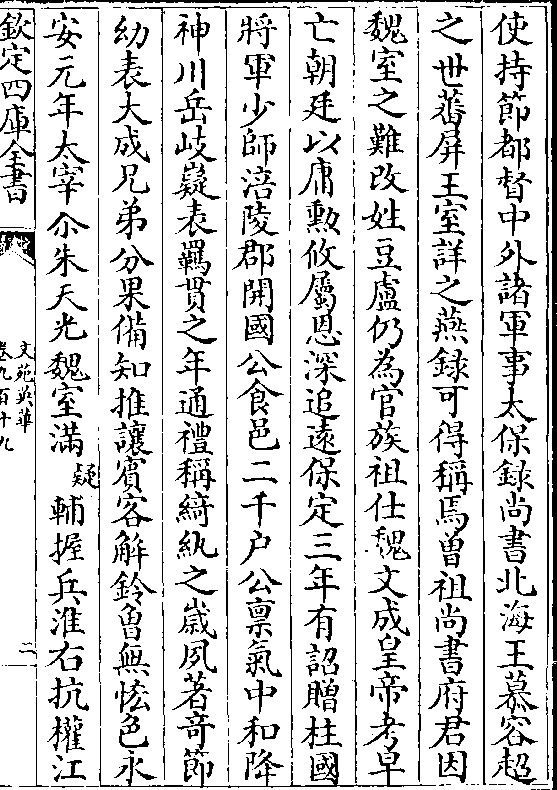 使持節都督中外諸軍事太保録尚書北海王慕容超
之世蕃屏王室詳之燕録可得稱焉曽祖尚書府君因
魏室之難改姓豆盧仍為官族祖仕魏文成皇帝考早
亡朝廷以庸勲攸屬恩深追逺保定三年有詔贈柱國
將軍少師涪陵郡開國公食邑二千户公禀氣中和降
神川岳岐嶷表羈貫之年通禮稱綺紈之嵗夙著竒節
幼表大成兄弟分果備知推讓賓客解鈴曽無恡色永
安元年太宰尒朱天光魏室滿疑輔握兵淮右抗權江
欽定四庫全書
文苑英華
卷九百十九
二